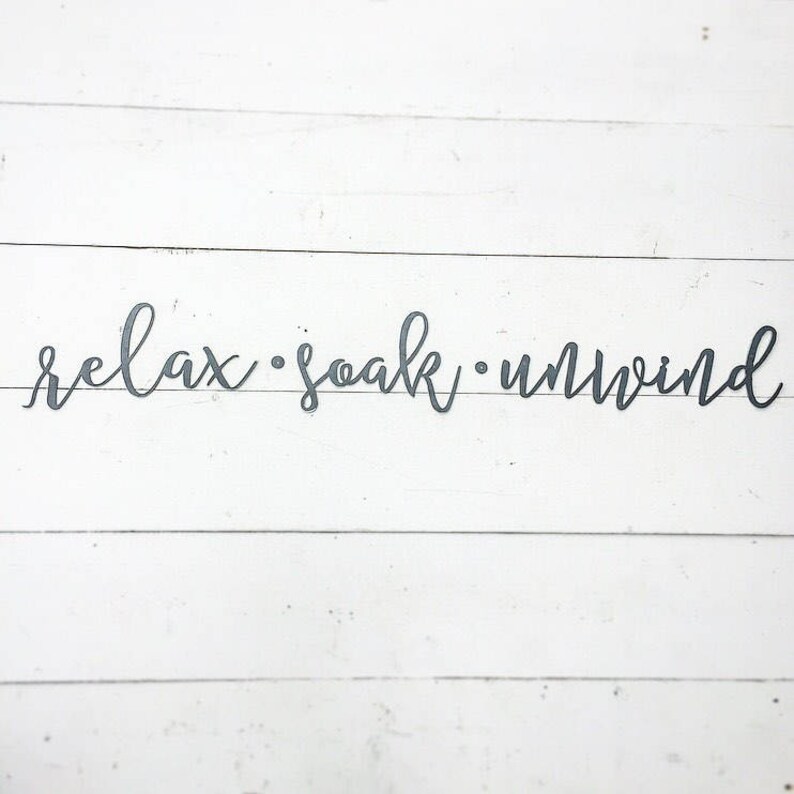 relax • soak • unwind